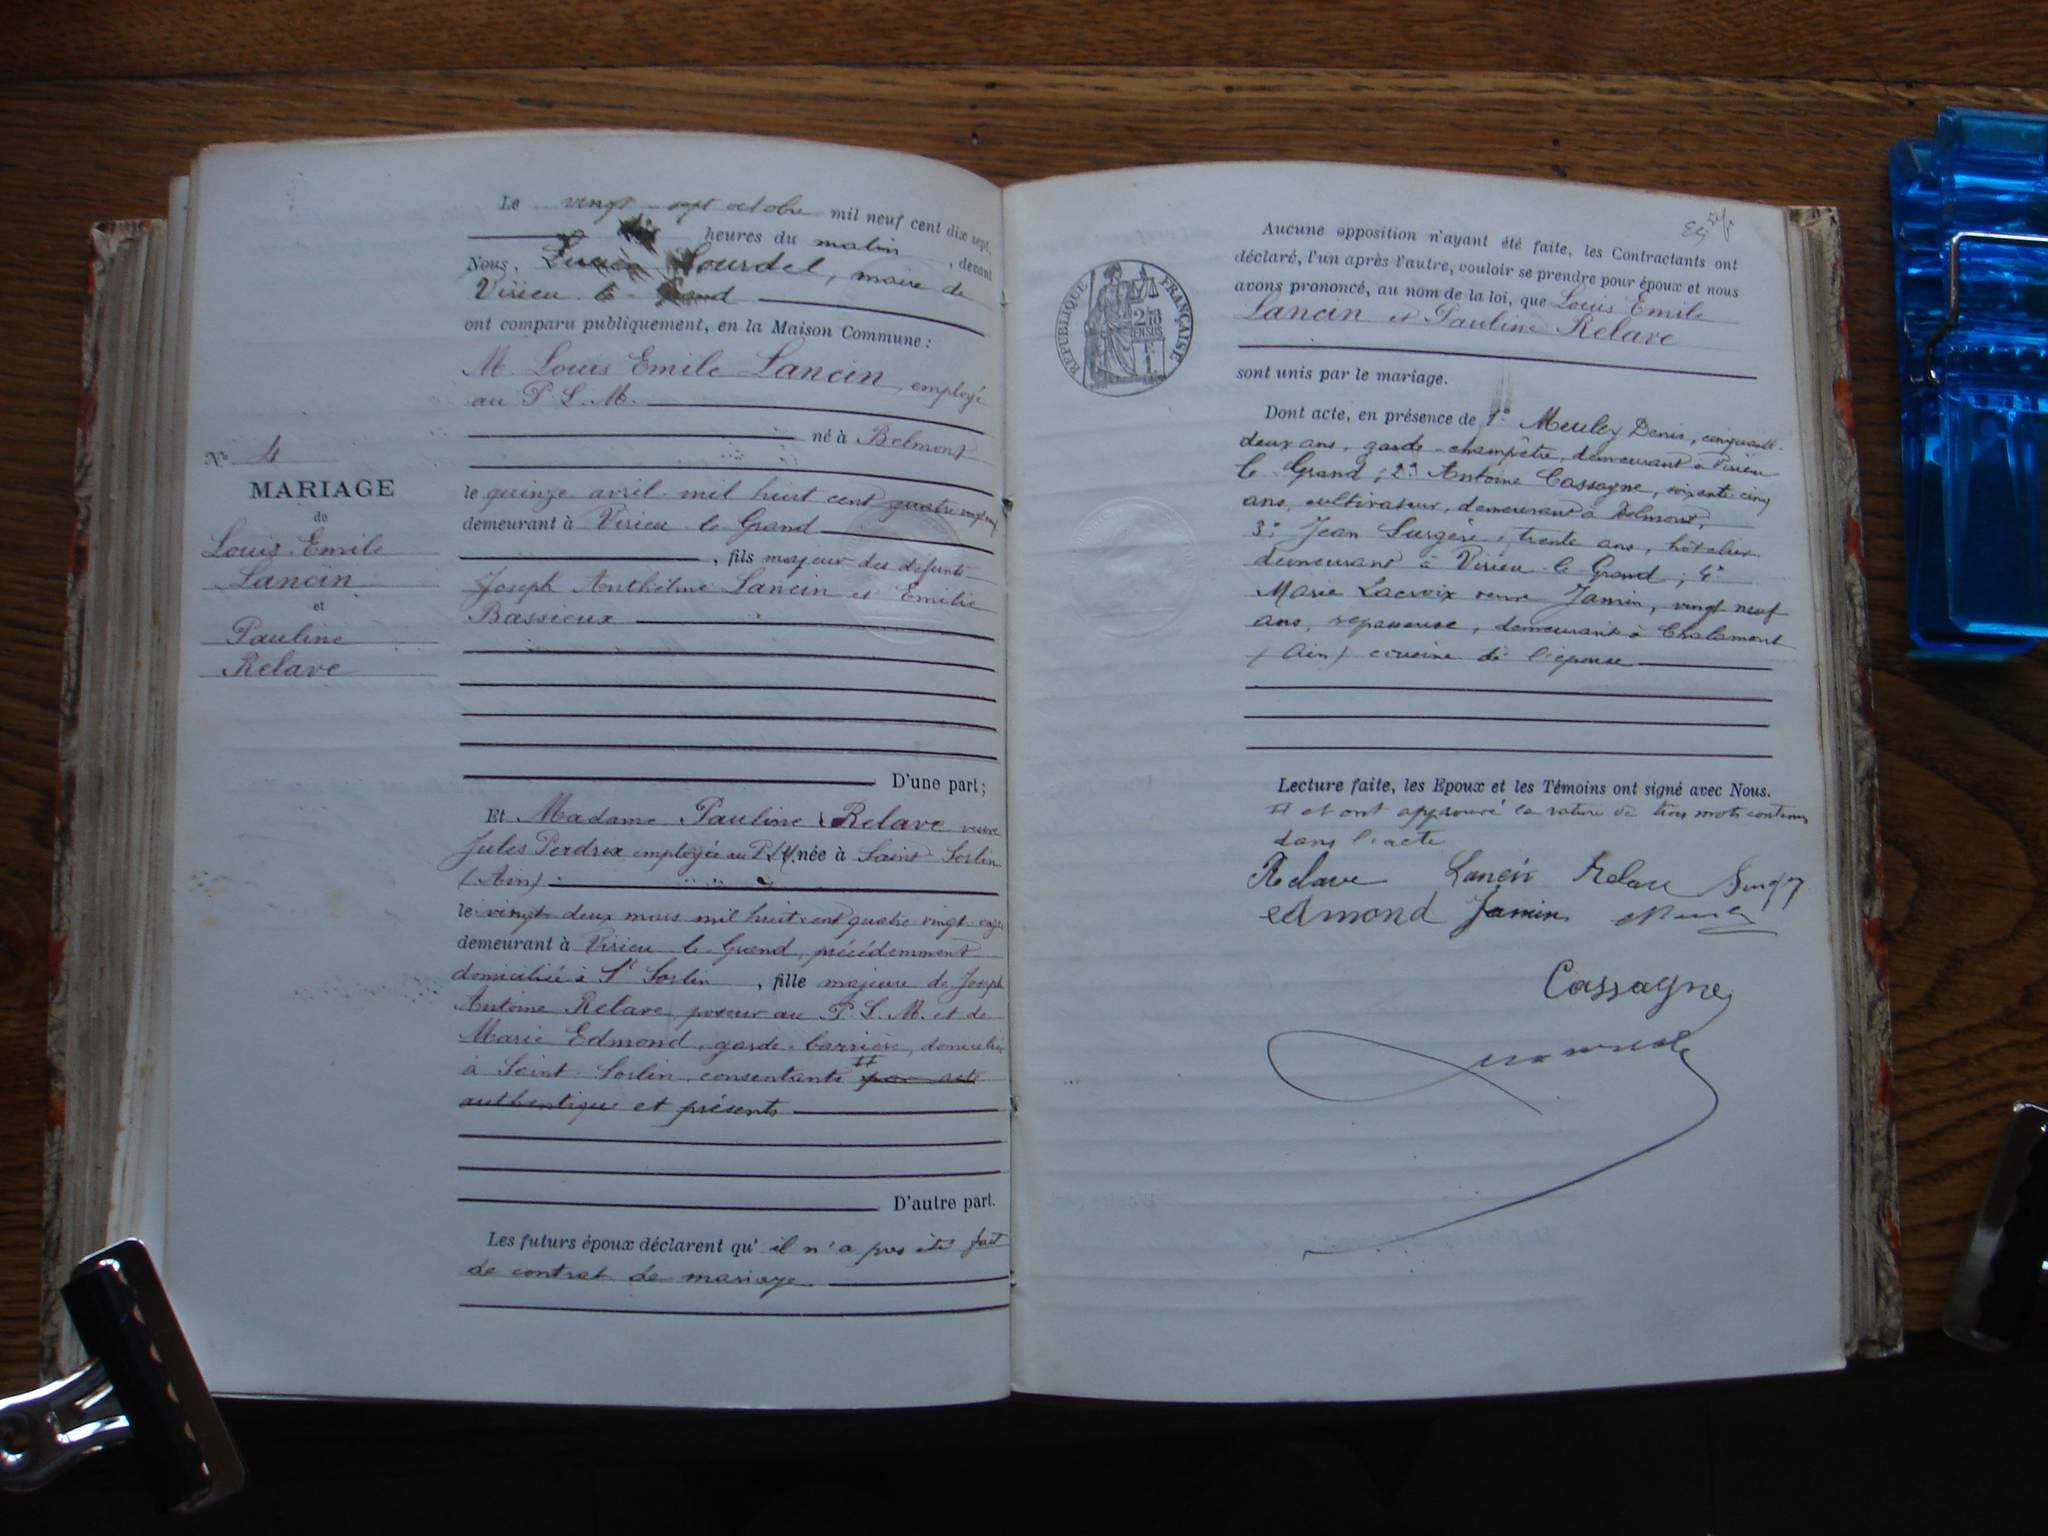 Le vingt-sept octobre mil neuf cent dix sept,
dix heures du matin, devant
Nous, Lourdel, maire de
Virieu-le-Grand
ont comparu publiquement, en la Maison Commune :
M. Louis Emile Lancin, employé
au P. L. M.
né à Belmont
N° 4
MARIAGE
de
Louis Emile
Lancin
et
Pauline
Relave
le quinze avril mil huit cent quatre vingt
demeurant à Virieu-le-Grand
, fils majeur des défunts
Joseph Anthelme Lancin et Emilie
Bassieux
D'une part ;
Et Madame Pauline Relave veuve
Jules Perdrix, employée au P.L.M. née à Saint-Sorlin
(Ain)
le vingt-deux mars mil huit cent quatre-vingt-onze
demeurant à Virieu-le-Grand, précédemment
domiciliée à St Sorlin, fille majeure de Joseph
Antoine Relave, poseur au P. L. M. et de
Marie Edmond, garde-barrière, domiciliés
à Saint-Sorlin, consentants par acte
authentique et présents
D'autre part.
Les futurs époux déclarent qu'il n'a pas été fait
de contrat de mariage.
Aucune opposition n'ayant été faite, les Contractants ont
déclaré, l'un après l'autre, vouloir se prendre pour époux et nous
avons prononcé, au nom de la loi, que Louis Emile
Lancin et Pauline Relave
RÉPUBLIQUE FRANÇAISE
sont unis par le mariage.
Dont acte, en présence de 1° Meuley Denis, cinquante-
deux ans, garde-champêtre, demeurant à Virieu
le-Grand ; 2° Antoine Cassagne, soixante-cinq
ans, cultivateur, demeurant à Belmont,
3° Jean Surgère, trente ans, hôtelier
demeurant à Virieu-le-Grand ; 4°
Marie Lacroix veuve Jamin, vingt neuf
ans, repasseuse, demeurant à Chalamont
(Ain) cousine de l'épouse
Lecture faite, les Epoux et les Témoins ont signé avec Nous.
Et ont approuvé la rature de trois mots contenus
dans l'acte
Relave Lancin Relave
edmond Jamin
Cassagne